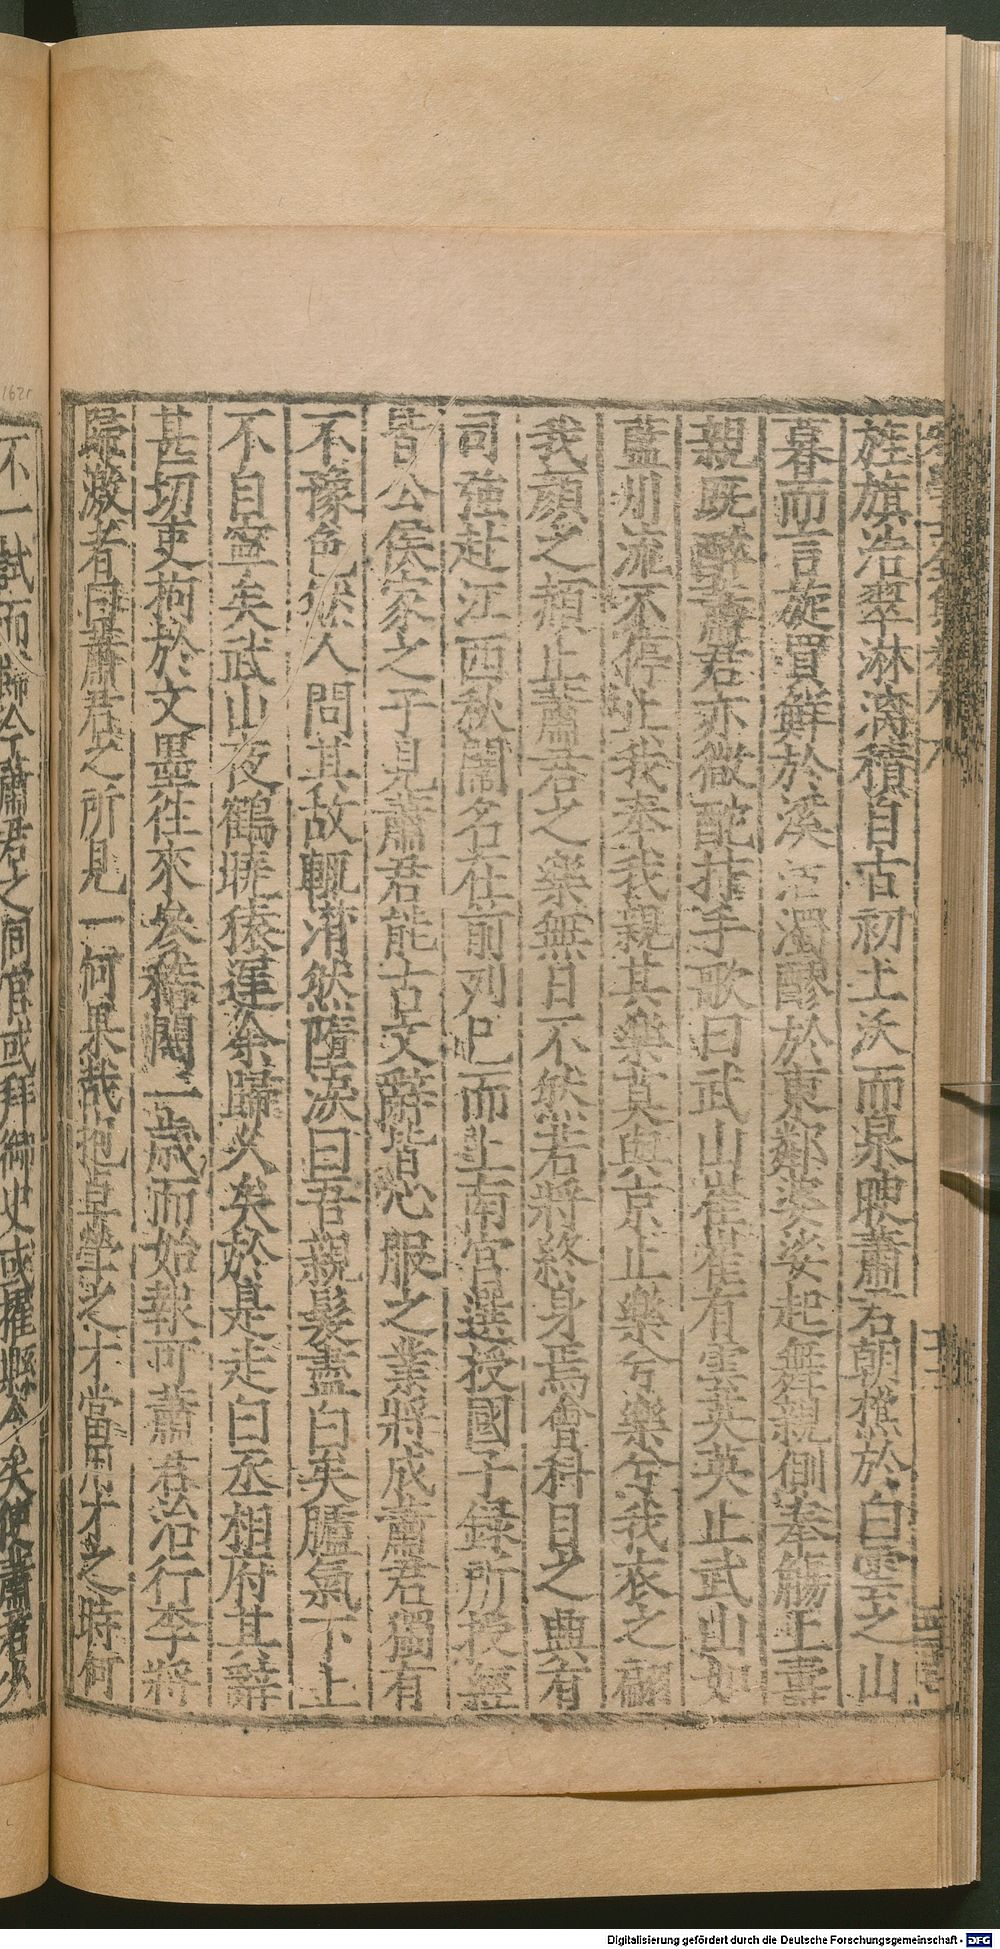 旌旗浩翠淋漓積自古初土沃而泉腴蕭君朝樵於白雲之山
暮而言旋買鮮於溪沽濁醪於東鄰婆娑起舞親側奉觴上壽
親既醉蕭君亦微酡拊手歌曰武山崔崔有雲英英止武山如
藍川流不停止我奉我親其樂莫與京止樂兮樂兮我衣之翩
我顏之頳止蕭君之樂無日不然若將終身焉會科目之興有
司強赴江西秋闈名在前列已而上南宮選授國子録所授經
皆公侯家之子見蕭君能古文辭皆心服之業將成蕭君獨有
不豫色然人問其故輒潸然墮淚曰吾親髮盡白矣臚氣下上
不自寧矣武山夜鶴曉猿遲余歸久矣於是走白丞相府其辭
甚切吏拘於文墨往來參稽閱一歲而始報可蕭君治行李將
歸濂者曰蕭君之所見一何果哉抱卓犖之才當用才之時何
不一試而 今蕭君之同官或拜御史或擢縣令矣使蕭君少
Digitalisierung gefördert durch die Deutsche Forschungsgemeinschaft - DFG